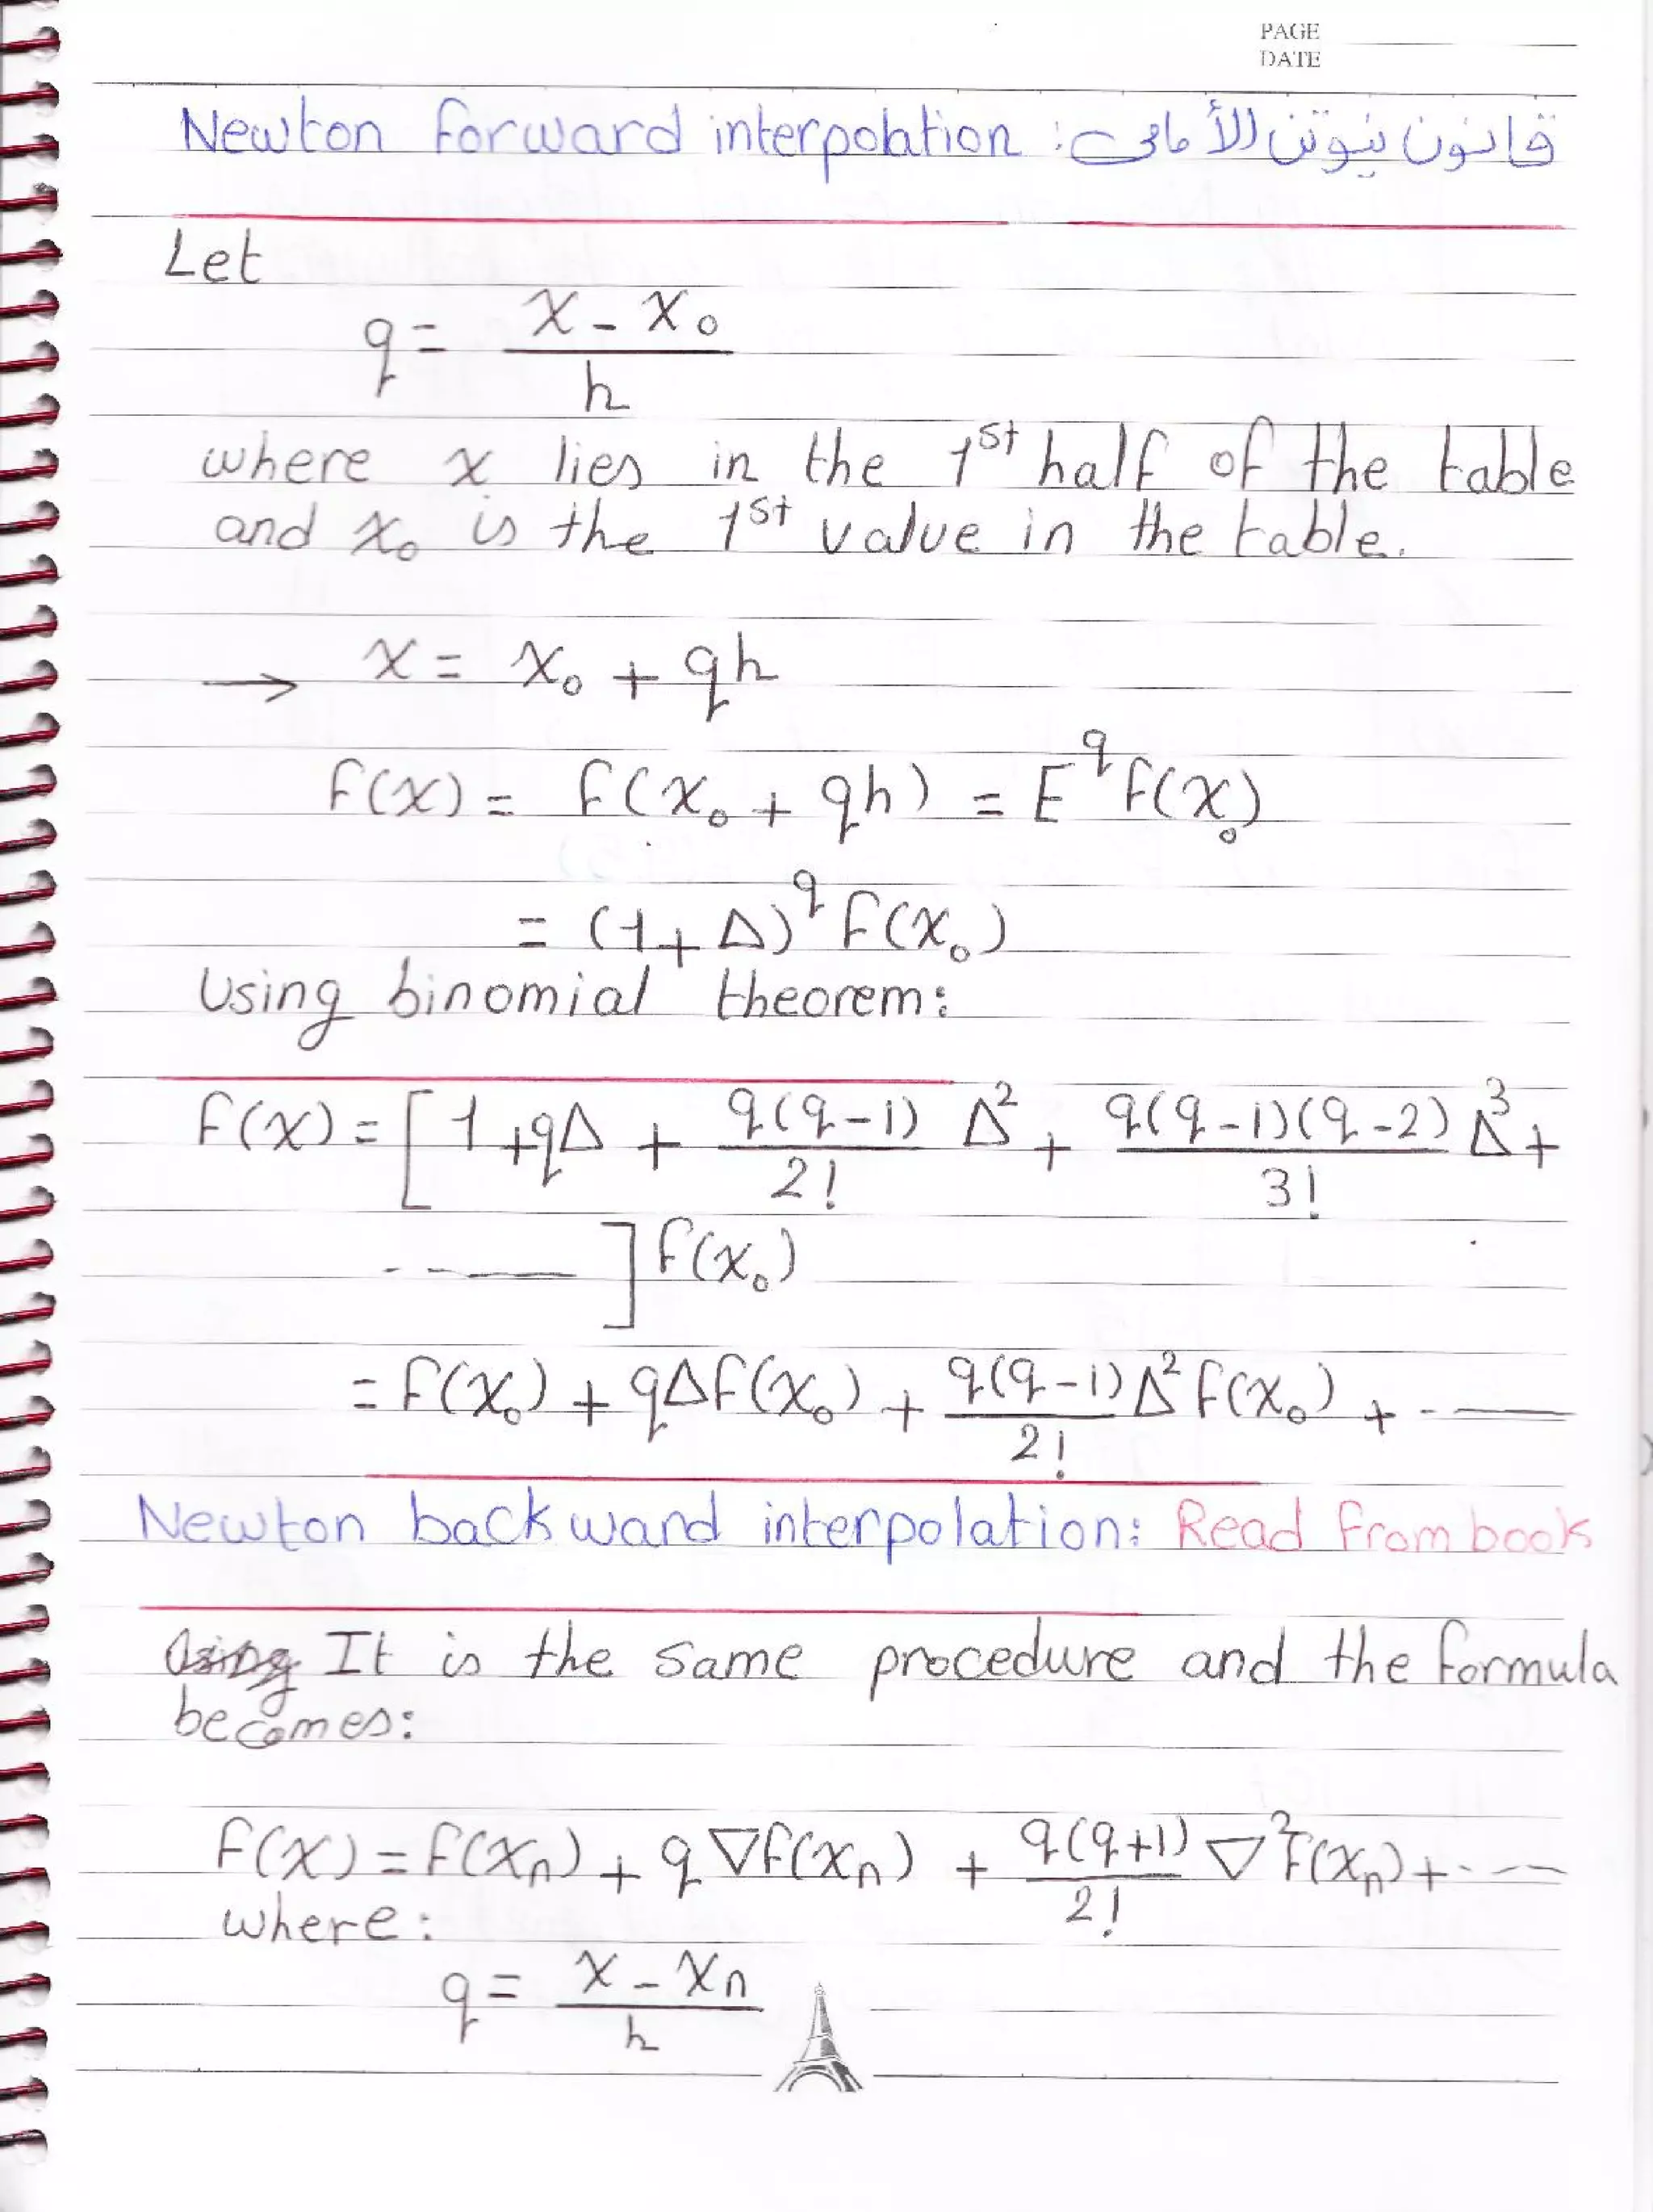 PAGE
DATE
Newton forward interpolation : قانون نيوتن للأمامى
Let
q = x - x₀ / h
where x lies in the 1st half of the table
and x₀ is the 1st value in the table.
→ x = x₀ + qh
f(x) = f(x₀ + qh) = E^q f(x₀)
= (1 + Δ)^q f(x₀)
Using binomial theorem:
f(x) = [1 + qΔ + q(q-1)/2! Δ² + q(q-1)(q-2)/3! Δ³ +
------] f(x₀)
= f(x₀) + qΔf(x₀) + q(q-1)/2! Δ² f(x₀) + -----
Newton backward interpolation: Read from book
Using It is the same procedure and the formula
becomes:
f(x) = f(xₙ) + q ∇f(xₙ) + q(q+1)/2! ∇² f(xₙ) + ----
where:
q = x - xₙ / h